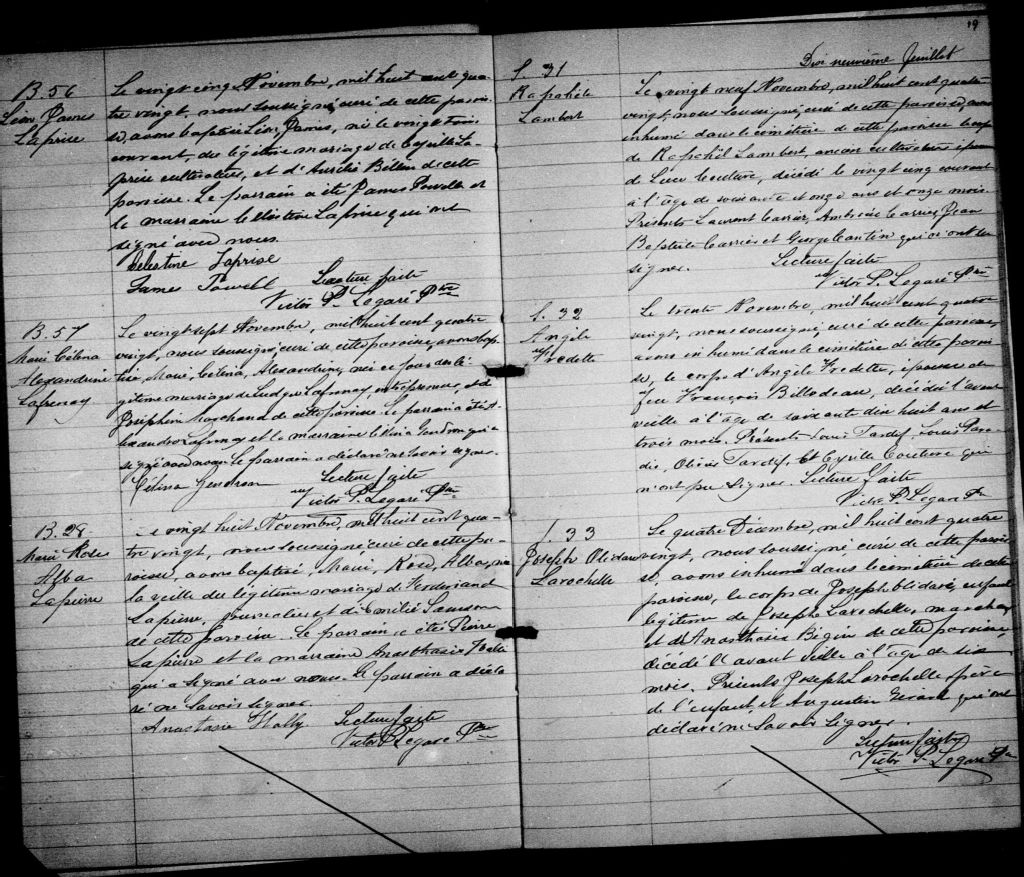 B. 56
Léon James
Laprise
Le vingt cinq Novembre, mil huit cent qua-
tre vingt, nous soussigné curé de cette parois-
se, avons baptisé Léon, James, né le vingt trois
courant, du légitime mariage de Cyrille La-
prise cultivateur, et d'Aurélie de cette
paroisse. Le parrain a été James Powell et
la marraine Célestine Laprise qui ont
signé avec nous.
Célestine Laprise
James Powell Lecture faite
Victor P. Legaré Ptre
B. 57
Marie Célina
Alexandrine
Lafrenay
Le vingt sept Novembre, mil huit cent quatre
vingt, nous soussigné, curé de cette paroisse, avons bap-
tisé, Marie, Célina, Alexandrine, née ce jour du lé-
gitime mariage de Ludger Lafrenay, entrepreneur, et de
Joséphine Marchand de cette paroisse. Le parrain a été A-
lexandre Lafrenay et la marraine Célina Gendron qui a
signé avec nous. Le parrain a déclaré ne savoir signer.
Célina Gendron Lecture faite
Victor P. Legaré Ptre
B. 28
Marie Rose
Alba
Lapierre
Le vingt huit Novembre, mil huit cent qua-
tre vingt, nous soussigné curé de cette pa-
roisse, avons baptisé, Marie, Rose, Alba, née
la veille du légitime mariage de Ferdinand
Lapierre, journalier et d'Emilie Samson
de cette paroisse. Le parrain a été Pierre
Lapierre et la marraine Anasthasie
qui a signé avec nous. Le parrain a décla-
ré ne savoir signer.
Anastasie Lecture faite
Victor P. Legaré Ptre
19
Dix neuvième feuillet
S. 31
Raphaël
Lambert
Le vingt neuf Novembre, mil huit cent quatre
vingt, nous soussigné, curé de cette paroisse, avons
inhumé dans le cimetière de cette paroisse le corps
de Raphaël Lambert, ancien cultivateur époux
de Couture, décédé le vingt cinq courant
à l'âge de soixante et onze ans et onze mois.
Présents Laurent Carrier, Ambroise Carrier, Jean
Baptiste Carrier et George Cantin qui n'ont su
signer. Lecture faite
Victor P. Legaré Ptre
S. 32
Angèle
Fredette
Le trente Novembre, mil huit cent quatre
vingt, nous soussigné, curé de cette paroisse,
avons inhumé dans le cimetière de cette parois-
se, le corps d'Angèle Fredette, épouse de
feu François Billodeau, décédée l'avant
veille à l'âge de soixante dix huit ans et
trois mois. Présents Louis Tardif, Louis Para-
dis, Olivier Tardif, et Cyrille Couture qui
n'ont pu signer. Lecture faite
Victor P. Legaré Ptre
S. 33
Joseph Olidas
Larochelle
Le quatre Décembre, mil huit cent quatre
vingt, nous soussigné curé de cette parois-
se, avons inhumé dans le cimetière de cette
paroisse, le corps de Joseph Olidas, enfant
légitime de Joseph Larochelle, marchand
et de Anasthasie Bégin de cette paroisse,
décédé l'avant veille à l'âge de six
mois. Présents Joseph Larochelle père
de l'enfant, et Augustin qui ont
déclaré ne savoir signer.
Lecture faite
Victor P. Legaré Ptre